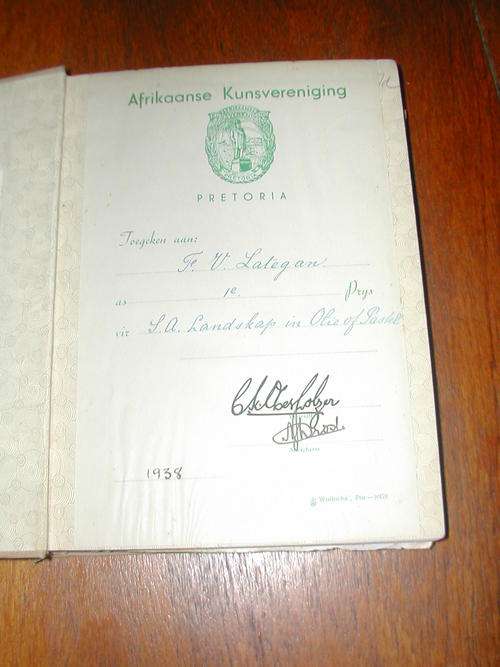 Afrikaanse Kunsvereniging
PRETORIA
Toegeken aan:
V. Lategan.
as 1e. Prys
vir S.A. Landskap in Olie of Pastel
1938